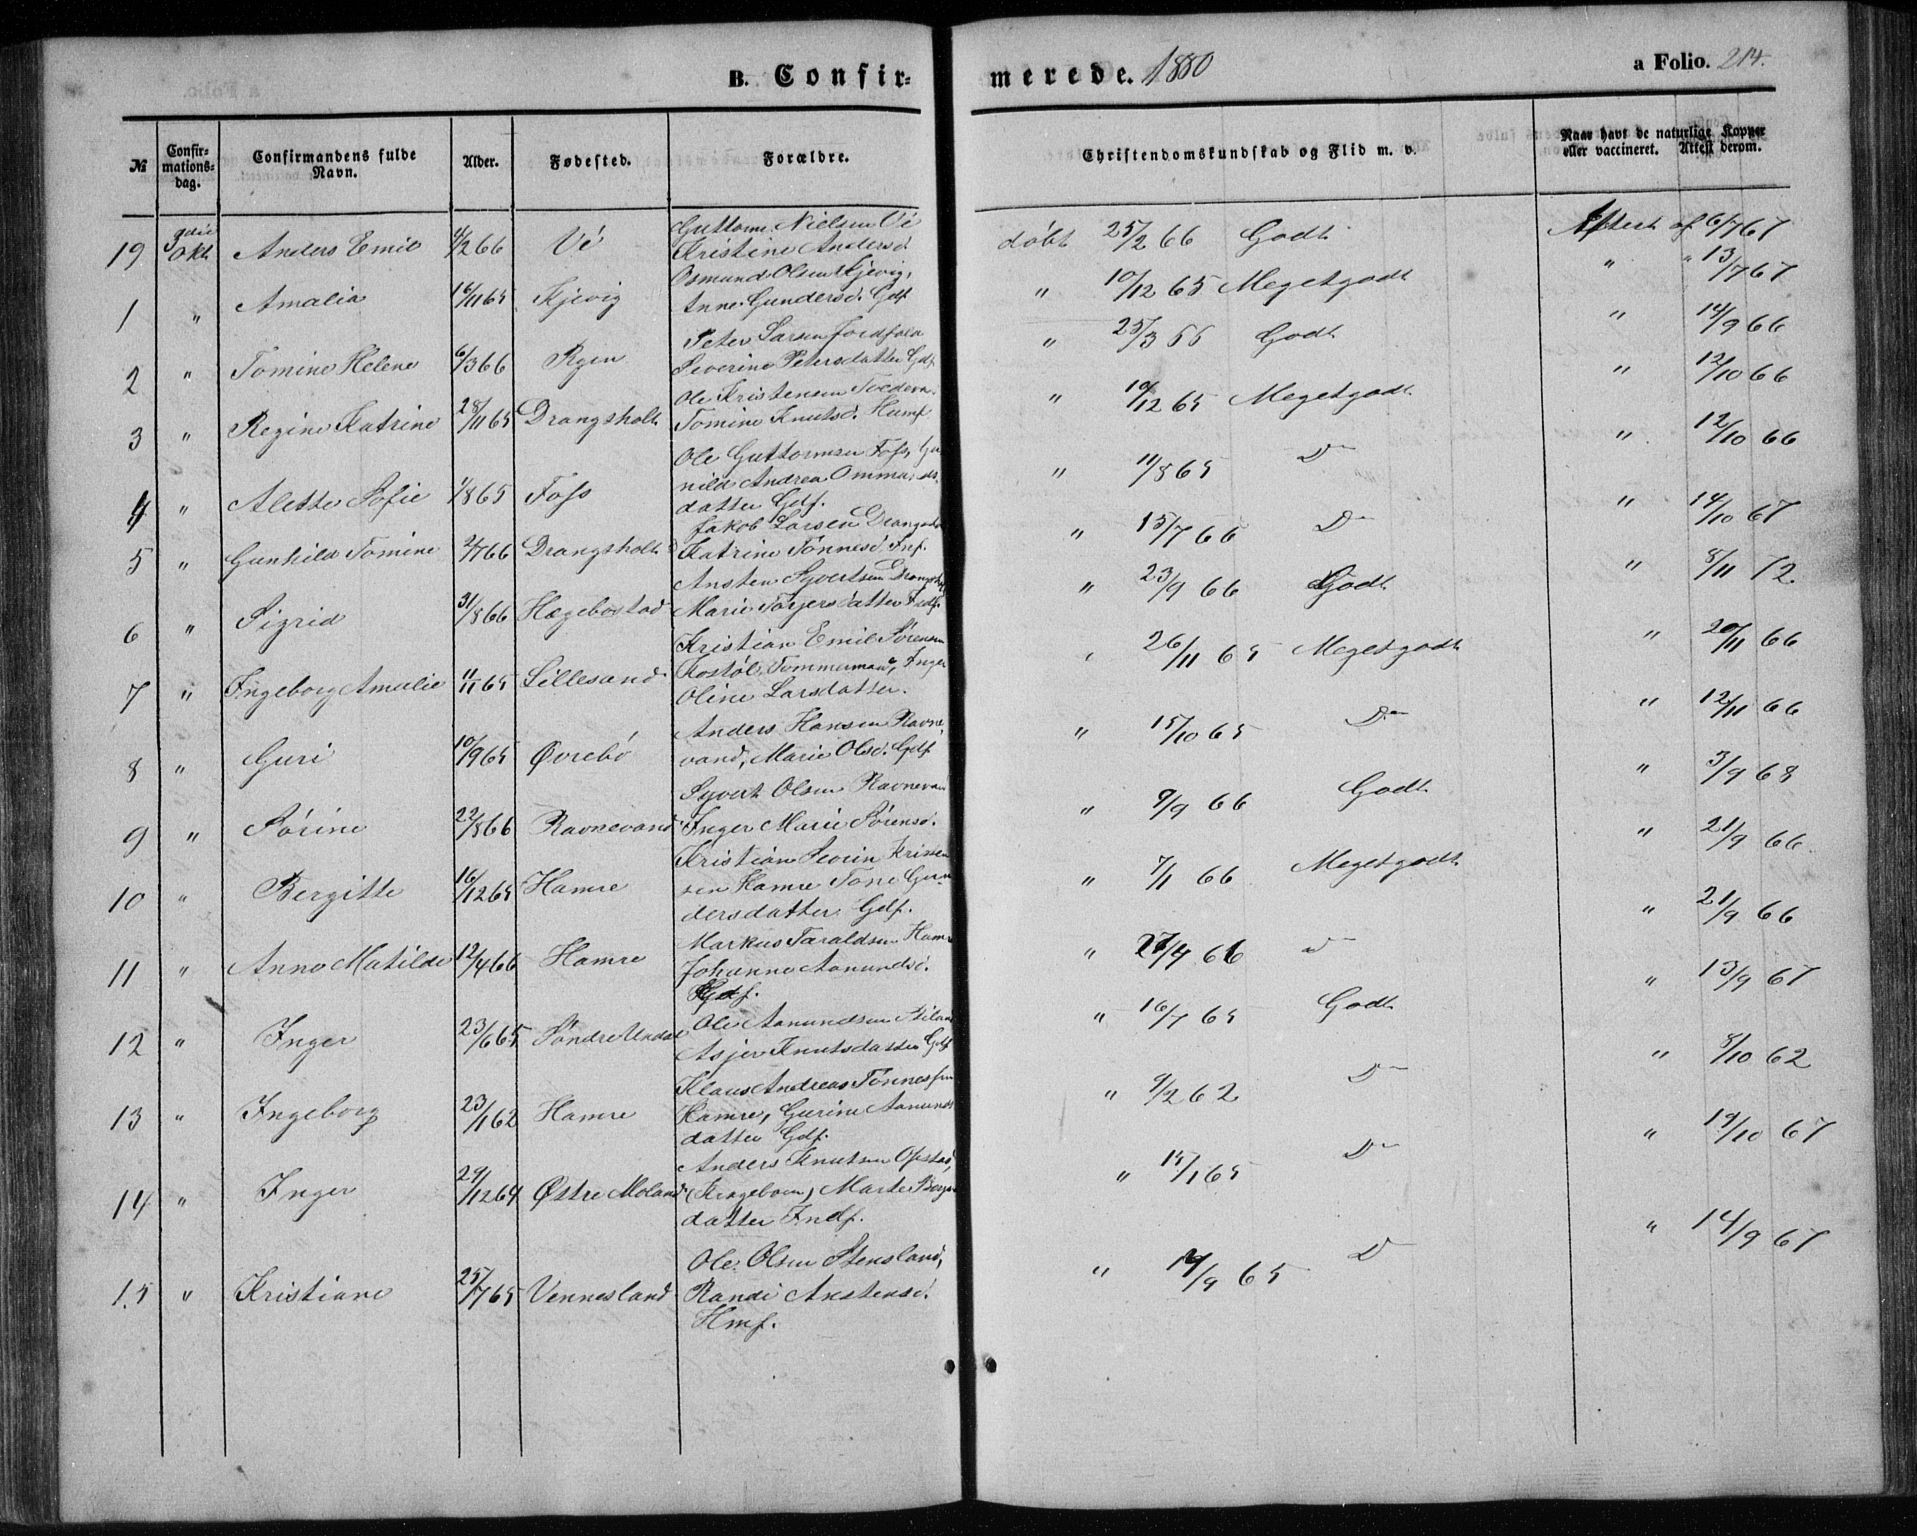 B. Confir-
merede. 1880
a Folio. 214.
№
Confir-
mations-
dag.
Confirmandens fulde
Navn.
Alder.
Fødested.
Forældre.
Christendomskundskab og Flid m. v.
Naar havt de naturlige Kopper
eller vaccineret. Attest derom.
19 Okt. Anders Emil 4/2 66 Vé Guttorm Nielsen Vé
Kristine Andersd. døbt 25/2 66 Godt Attest af 6/7 67
1 " Amalia 16/11 65 Kjevig Osmund Olsen Kjevig,
Anne Gundersd. Gdf. " 10/12 65 Megetgodt " " 13/7 67
2 " Tomine Helene 6/3 66 Rgen Peter Larsen
Severine Petersdatter Gdf. " 25/3 66 Godt " 14/9 66
3 " Regine Katrine 28/11 65 Drangsholt Ole Kristensen
Tomine Knutsd. Humf. " 10/12 65 Megetgodt " 12/10 66
4 " Alette Sofie 1/8 65 Foss Ole Guttormsen Foss, Gu-
nild Andrea Ommunds-
datter Gdf. " 11/8 65 Do " 12/10 66
5 " Gunhild Tomine 2/7 66 Drangsholt Jakob Larsen Drangsholt
Katrine Tønnesd. Inf. " 15/7 66 Do " 14/10 67
6 " Sigrid 31/8 66 Hægebostad Ansten Syvertsen
Marie Torjersdatter Indf. " 23/9 66 Godt " 8/11 72.
7 " Ingeborg Amalie 11/11 65 Lillesand Kristian Emil Sørensen
Kostøl, Tømmermand, Inger
Oline Larsdatter. " 26/11 65 Megetgodt " 20/11 66
8 " Guri 10/9 65 Øvrebø Anders Hansen Ravne-
vand, Marie Olsd. Gdf. " 15/10 65 Do " 12/11 66
9 " Sørine 22/8 66 Ravnevand Syvert Olsen Ravnevan
Inger Marie Sørensd. " 9/9 66 Godt " 3/9 68
10 " Bergitte 16/12 65 Hamre Kristian Severin
sen Hamre Tone Gun-
dersdatter Gdf. " 7/1 66 Megetgodt " 21/9 66
11 " Anne Matilde 12/4 66 Hamre Markus Taraldsen Hamre
Johanne Aanundsd.
Gdf. " 27/4 66 Do " 21/9 66
12 " Inger 23/6 65 Søndre Undal Ole Aanundsen
Asjer Knutsdatter Gdf. " 16/7 65 Godt " 13/9 67
13 " Ingeborg 23/1 62 Hamre Klaus Andreas Tønnessen
Hamre, Gurine Aanunds
datter Gdf. " 9/2 62 Do " 8/10 62
14 " Inger 29/12 64 Østre Moland Anders Knutsen Opstad,
(Krogeboen) Marte Berges
datter Indf. " 15/1 65 Do " 19/10 67
15 " Kristiane 25/7 65 Vennesland Ole Olsen Stensland,
Randi Anstensd.
Hmf. " 14/9 65 D " 14/9 67